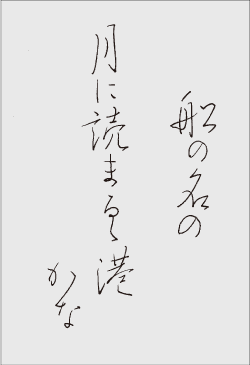 船の名の
月に読まるゝ港
かな